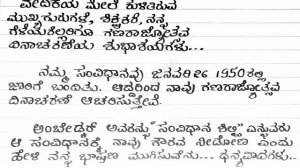 ವೇದಿಕೆಯ ಮೇಲೆ ಕುಳಿತಿರುವ
ಮುಖ್ಯಗುರುಗಳೆ, ಶಿಕ್ಷಕರೆ, ನನ್ನ
ಗೆಳೆಯರೆಲ್ಲರಿಗೂ ಗಣರಾಜ್ಯೋತ್ಸವ
ದಿನಾಚರಣೆಯ ಶುಭಾಶಯಗಳು...
ನಮ್ಮ ಸಂವಿಧಾನವು ಜನವರಿ 26 1950ರಲ್ಲಿ
ಜಾರಿಗೆ ಬಂದಿತು. ಆದ್ದರಿಂದ ನಾವು ಗಣರಾಜ್ಯೋತ್ಸವ
ದಿನಾಚರಣೆ ಆಚರಿಸುತ್ತೇವೆ.
ಅಂಬೇಡ್ಕರ್ ಅವರನ್ನು "ಸಂವಿಧಾನ ಶಿಲ್ಪಿ" ಎನ್ನುವರು
ಆ ಸಂವಿಧಾನಕ್ಕೆ ನಾವು ಗೌರವ ನೀಡೋಣ ಎಂದು
ಹೇಳಿ ನನ್ನ ಭಾಷಣ ಮುಗಿಸುವೆನು... ಧನ್ಯವಾದಗಳು.